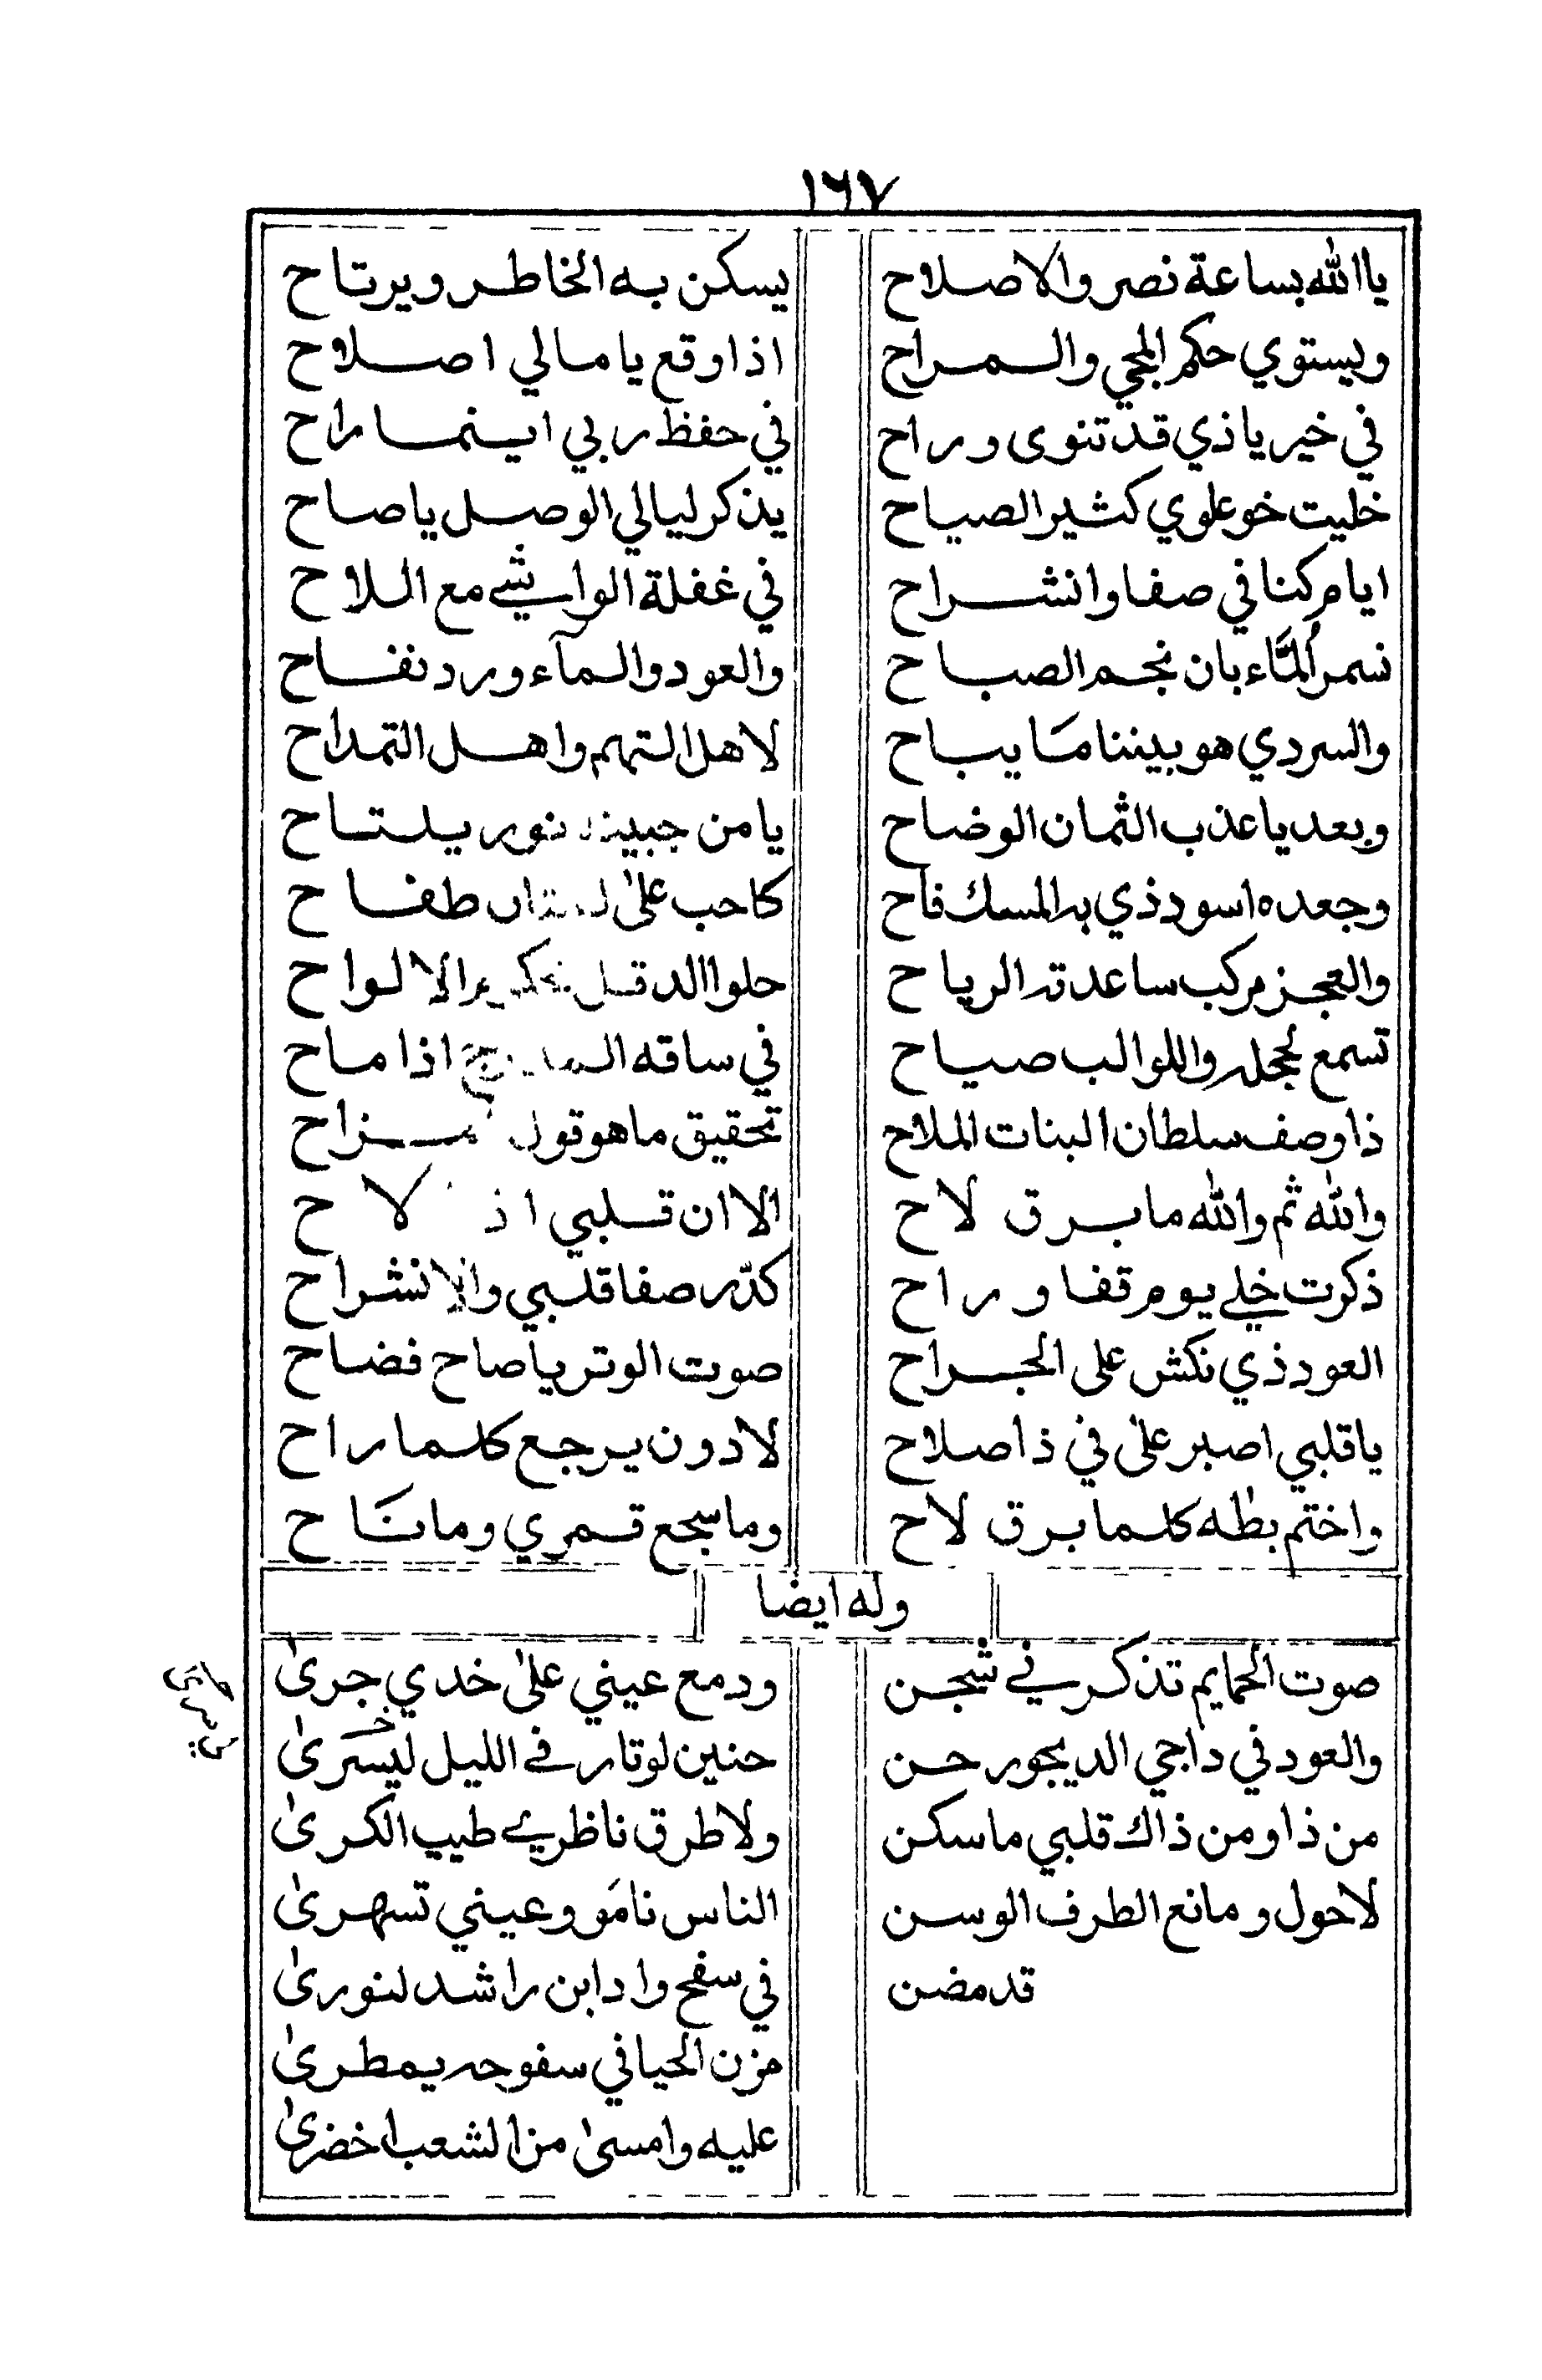 ١٦٧
ياالله بساعة نصر والاصلاح يسكن به الخاطر ويرتاح
ويستوي حكم المجي والمراح اذا وقع يا مالي اصلاح
في خير يا ذي قد تنوى وراح في حفظ ربي اينما راح
خليت خو علوي كثير الصياح يذكر ليالي الوصل يا صاح
ايام كنا في صفا وانشراح في غفلة الواشي مع الملاح
نسمر ألمّاء بان نجم الصباح والعود والمآء ورد نفاح
والسر دي هو بيننا مَا يباح لاهل التهم واهل التمداح
وبعد يا عذب الثمان الوضاح يا من جبينه نور يلتاح
وجعده اسود ذي به المسك فاح كاحب على طفاح
والعجز مركب ساعدته الرياح حلوا الدقل الالواح
تسمع لحجله واللوالب صياح في ساقه اذا ماح
ذا وصف سلطان البنات الملاح تحقيق ما هو قول مزاح
والله ثم والله ما برق لاح الا ان قلبي اذ لاح
ذكرت خلي يوم قفا وراح كدّر صفا قلبي والانشراح
العود ذي نكش على الجراح صوت الوتر يا صاح فضاح
يا قلبي اصبر على في ذا صلاح لادون يرجع كلما راح
واختم بطٰه كلما برق لاح وما سجع قمري وما نَاح
وله ايضا
صوت الحمايم تذكرني شجن ودمع عيني علىٰ خدي جرىٰ
والعود في داجي الديجور حن حنين لوتار في الليل ليسَرىٰ
من ذا ومن ذاك قلبي ما سكن ولا طرق ناظري طيب الكرىٰ
لاحول وما نع الطرف الوسن الناس نامَو وعيني تسهرىٰ
قد مضن في سفح وادابن راشد لنورىٰ
مزن الحيا في سفوحه يمطرىٰ
عليه وامسىٰ من الشعب اخضرىٰ